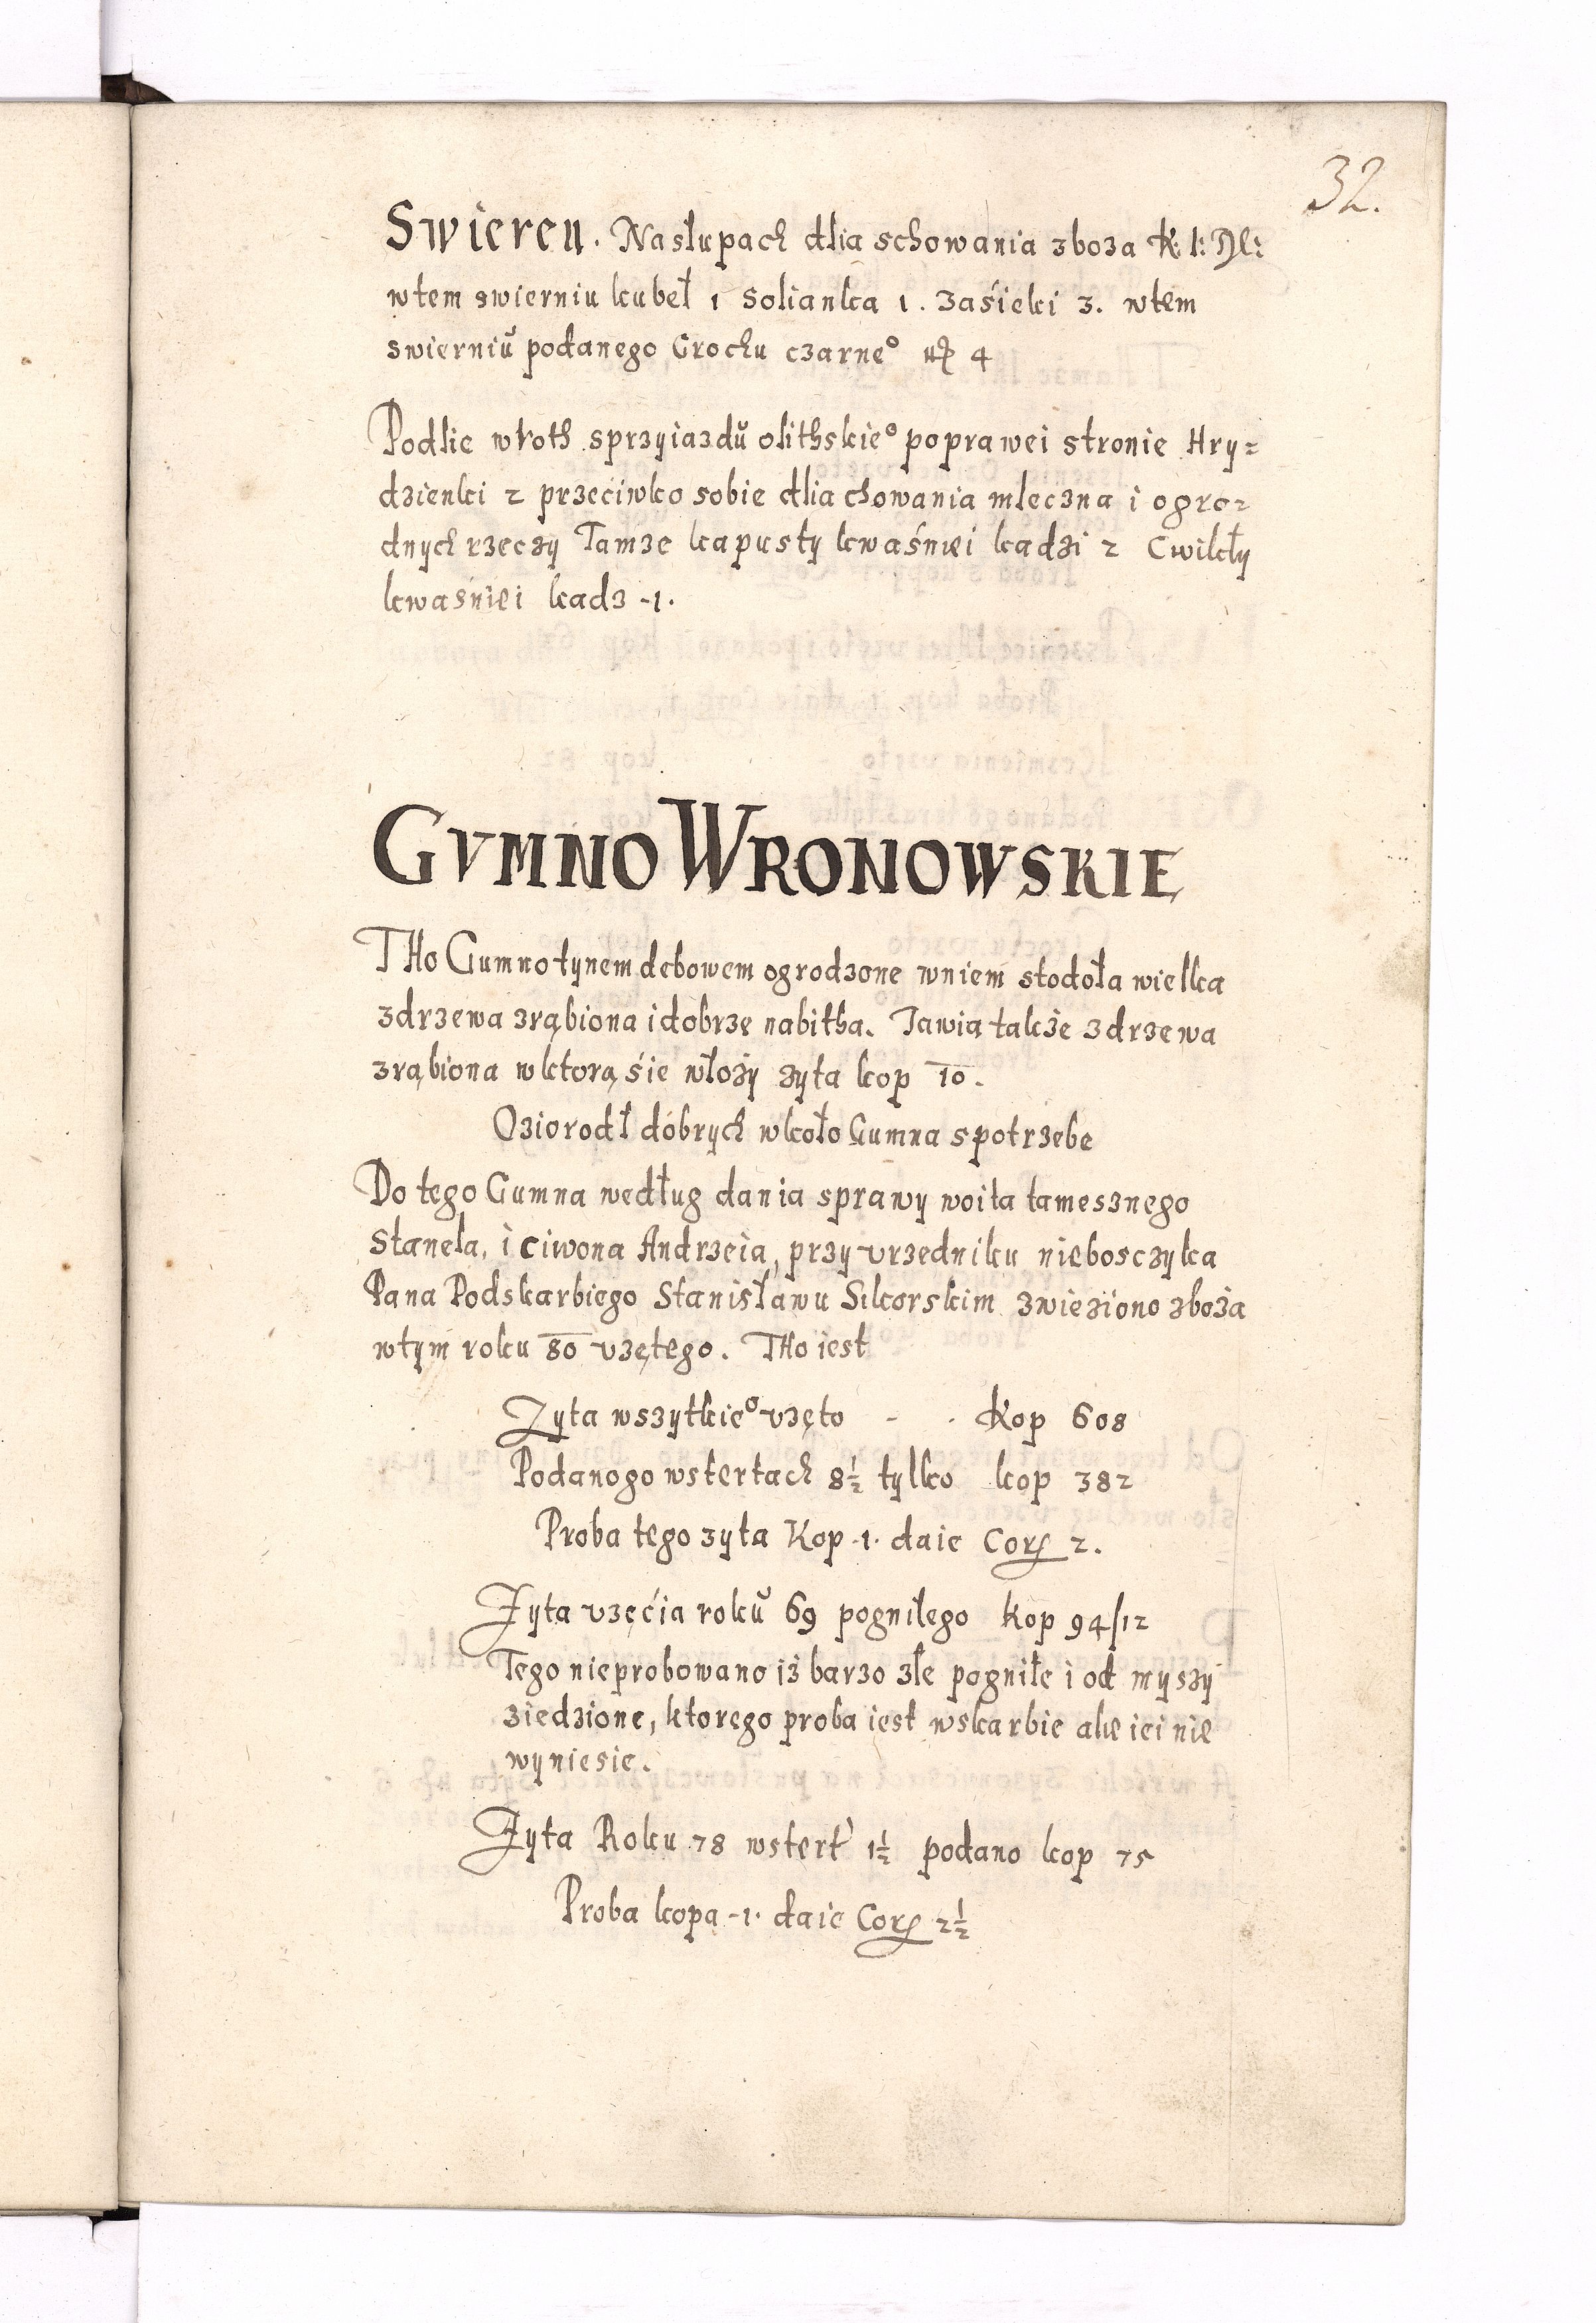 32.
Swieren. Na słupach dlia schowania zboza K: 1: Dl:
wtem swierniu kubeł 1 Solianka 1. Zaśieki 3. wtem
swierniŭ podanego Grochu czarneº 4
Podlie wroth sprzyiazdŭ olithskieº poprawei stronie Hry=
dzienki 2 przeciwko sobie dlia chowania mleczna i ogro=
dnych rzeczy Tamze kapusty kwaśniei kadzi 2 Cwikły
kwaśniei kadz -1.
GVMNO WRONOWSKIE
THo Gumno tynem debowem ogrodzone wniem stodoła wielka
zdrzewa zrąbiona i dobrze nabitha. Jawia także zdrzewa
zrąbiona wktorą śie włoży żyta kop 10.
Oziorodł dobrych wkoło Gumna spotrzebe
Do tego Gumna według dania sprawy woita tamesznego
Stanela, i Ciwona Andrzeia, przy vrzedniku nieboszczyka
Pana Podskarbiego Stanisławu Sikorskim zwieziono zboża
wtym roku 80 vzętego. THo iest
Zyta wszytkieº vzęto - . Kop 608
Podanogo wstertach 8½ tylko kop 382
Proba tego zyta Kop -1. daie Corz 2.
Zyta vzęćia rokŭ 69 pogniłego kop 94/12
Tego nieprobowano iż barzo złe pogniłe i od myszy
ziedzione, ktorego proba iest wskarbie ale iei nie
wyniesie.
Zyta Roku 78 wstert 1½ podano kop 75
Proba kopa -1. daie Corz 2½